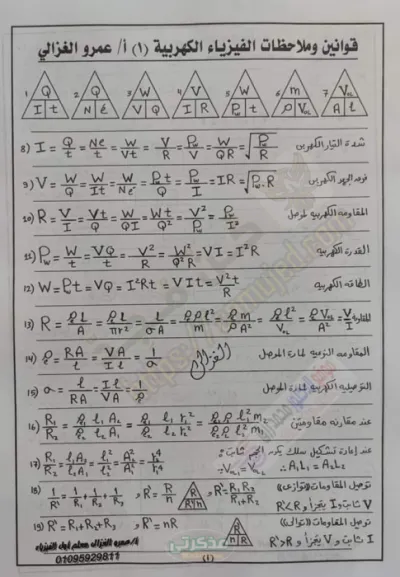 قوانين وملاحظات الفيزياء الكهربية (١) أ/ عمرو الغزالي
1 Q I t 2 Q N e 3 W V Q 4 V I R 5 W Pw t 6 m ρ Vol 7 Vol A l
8) I = Q/t = Ne/t = W/Vt = V/R = Pw/V = W/QR = √(Pw/R) شدة التيار الكهربى
9) V = W/Q = W/It = W/Ne = Pw t/Q = Pw/I = IR = √(Pw.R) فرق الجهد الكهربى
10) R = V/I = Vt/Q = W/QI = Wt/Q² = V²/Pw = Pw/I² المقاومه الكهربيه لموصل
11) Pw = W/t = VQ/t = V²/R = W²/Q²R = VI = I²R القدرة الكهربيه
12) W = Pwt = VQ = I²Rt = VIt = V²t/R الطاقه الكهربيه
13) R = ρl/A = ρl/πr² = l/σA = ρρl²/m = ρm/ρA² = ρl²/Vol = ρVol/A² = V/I المقاومه
14) ρ = RA/l = VA/Il = 1/σ المقاومه النوعيه لمادة الموصل
الغزالى
15) σ = l/RA = Il/VA = 1/ρ التوصيليه الكهربيه لمادة الموصل
16) R₁/R₂ = ρ₁ l₁ A₂/ρ₂ l₂ A₁ = ρ₁ l₁ r₂²/ρ₂ l₂ r₁² = ρ₁ρ₁ l₁² m₂/ρ₂ρ₂ l₂² m₁ عند مقارنه مقاومتين
17) R₁/R₂ = l₁A₂/l₂A₁ = l₁²/l₂² = A₂²/A₁² = r₂⁴/r₁⁴ عند إعادة تشكيل سلك يكون الحجم ثابت :
Vol₁ = Vol₂ ∴ A₁L₁ = A₂L₂
18) 1/R' = 1/R₁ + 1/R₂ + 1/R₃ و R' = R/n R R' n و R' = R₁R₂/R₁+R₂ توصيل المقاومات "توازى"
V ثابت و I يتجزأ و R' < R
19) R' = R₁+R₂+R₃ و R' = nR R' R n توصيل المقاومات "توالى"
I ثابت و V يتجزأ و R' > R
أ/عمرو الغزالى معلم اول الفيزياء
01095929811
(١)
مذكرتي